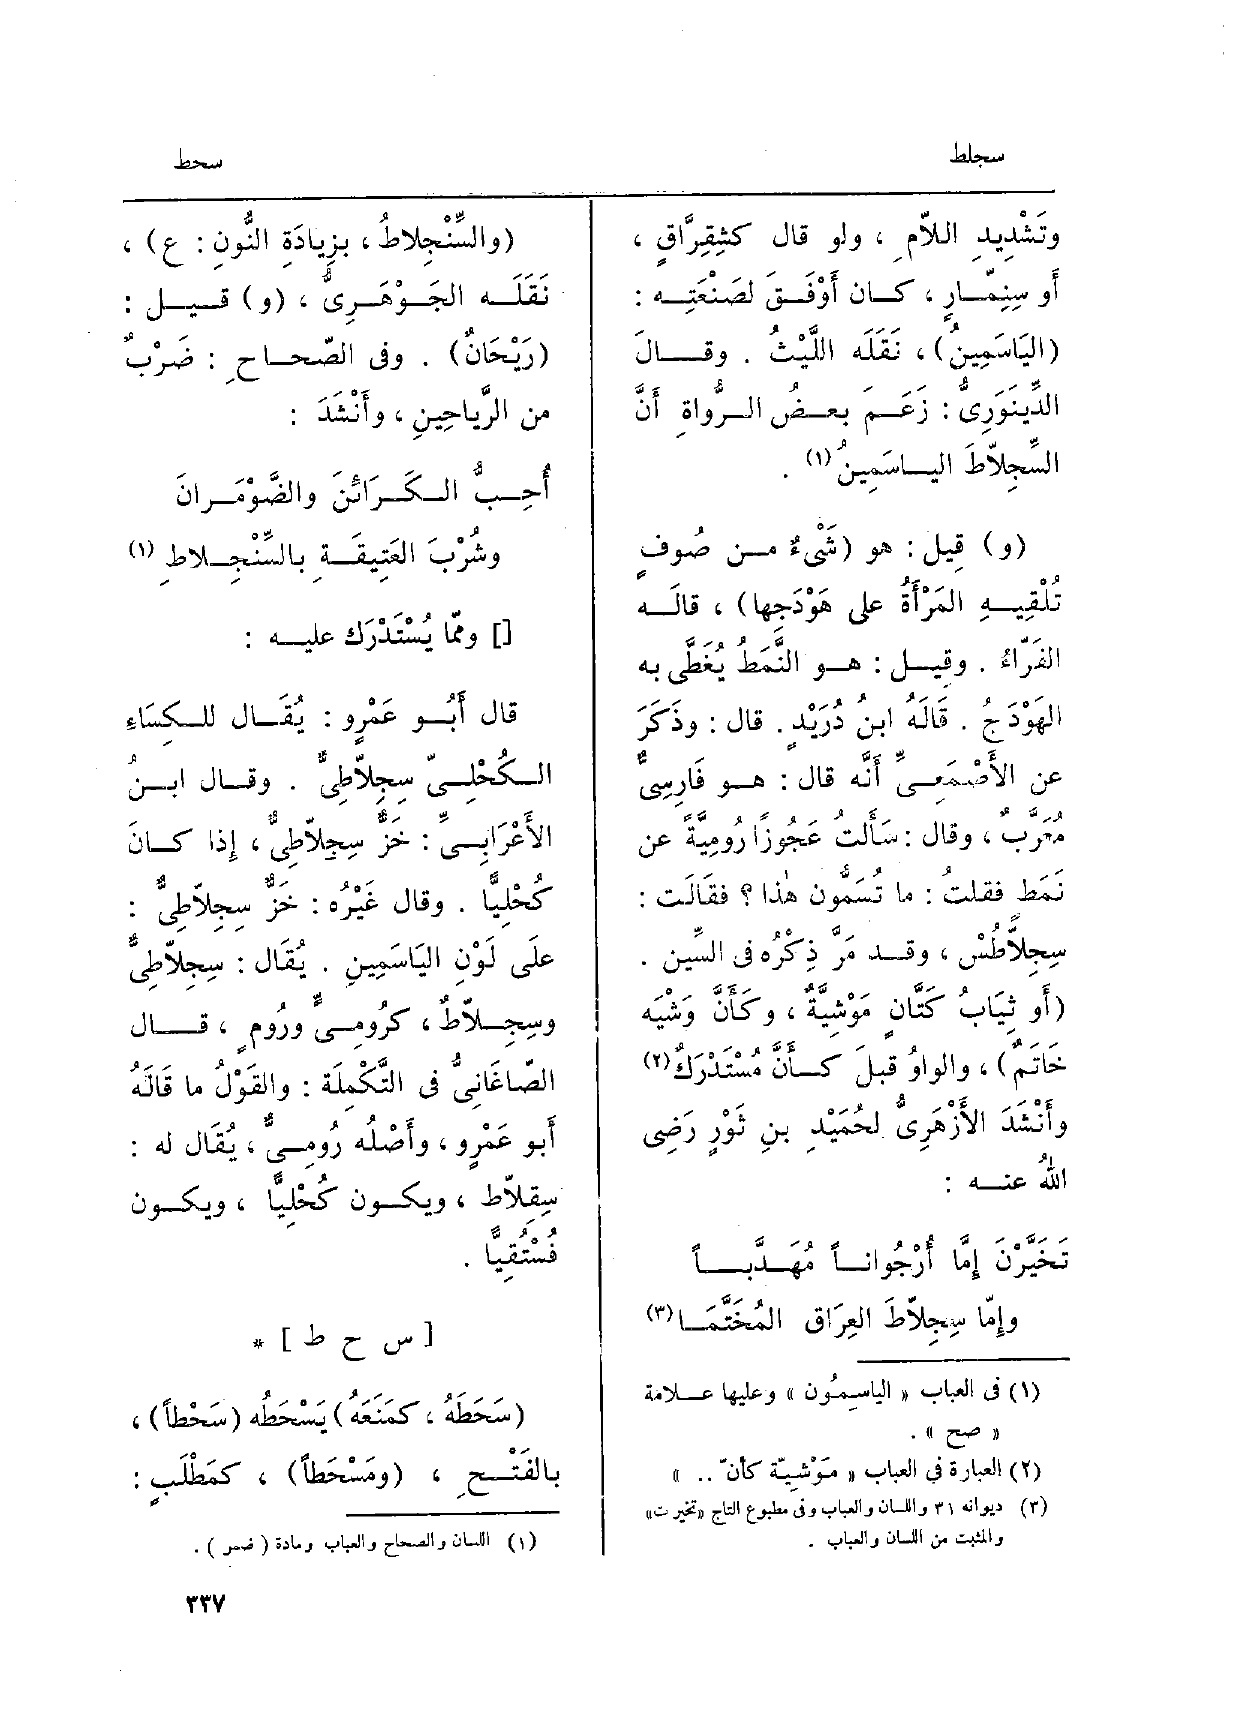 سجلط
سحط
وتَشْدِيدِ اللاّمِ ، ولو قال كشِقِرَّاقٍ ،
أَو سِنِمَّـارٍ ، كـان أَوْفَـقَ لصَنْعَتِـه :
(اليَاسَمِينُ) ، نَقَلَه اللَّيْثُ . وقـالَ
الدِّينَوَرِىُّ : زَعَـمَ بعـضُ الـرُّواةِ أَنَّ
السِّجِلاَّطَ اليـاسَمِينُ(١) .
(و) قِيل : هو (شَىْءٌ مـن صُوفٍ
تُلْقِيـهِ المَرْأَةُ على هَوْدَجِها) ، قالَـه
الفَرّاءُ . وقيـل : هـو النَّمَطُ يُغَطَّى به
الهَوْدَجُ . قَالَهُ ابنُ دُرَيْدٍ . قال : وذَكَرَ
عن الأَصْمَعِىِّ أَنَّه قال : هـو فَارِسِىٌّ
مُعَرَّبٌ ، وقال : سَأَلتُ عَجُوزًا رُومِيَّةً عن
نَمَط فقلتُ : ما تُسَمُّون هٰذا ؟ فقَالَت :
سِجِلاَّطُس ، وقـد مَرَّ ذِكْرُه فى السِّين .
(أَو ثِيَابُ كَتَّانٍ مَوْشِيَّةٌ ، وكَأَنَّ وَشْيَه
خَاتَمٌ) ، والواوُ قبلَ كـأَنَّ مُسْتَدْرَكٌ(٢)
وأَنْشَدَ الأَزْهَرِىُّ لحُمَيْدِ بنِ ثَوْرٍ رَضِى
اللهُ عنـه :
تَخَيَّرْنَ إِمَّا أُرْجُوانـاً مُهَـدَّبـاً
وإِمّا سِجِلاَّطَ العِرَاقِ المُخَتَّمَـا(٣)
(١) فى العباب « الياسمُون » وعليها علامة
« صح » .
(٢) العبارة فى العباب « مَوْشيّة كأَنّ .. »
(٣) ديوانه ٣١ واللسان والعباب وفى مطبوع التاج «تخيرت»
والمثبت من اللسان والعباب .
(والسِّنْجِلاطُ ، بزِيادَةِ النُّونِ : ع) ،
نَقَلَـه الجَـوْهَـرِىُّ ، (و) قـيـل :
(رَيْحَانٌ) . وفى الصّحـاحِ : ضَرْبٌ
من الرَّياحِينِ ، وأَنْشَدَ :
أُحِـبُّ الـكَـرَائنَ والضَّوْمَـرانَ
وشُرْبَ العَتِيقَـةِ بالسِّنْجِـلاطِ (١)
[] وممّا يُسْتَدْرَك عليـه :
قال أَبُـو عَمْرٍو : يُقَـال للـكِسَاءِ
الـكُحْلِـىِّ سِجِلاَّطِىٌّ . وقـال ابـنُ
الأَعْرَابِـىِّ : خَزٌّ سِجِلاَّطِىٌّ ، إِذا كـانَ
كُحْلِيًّا . وقال غَيْرُه : خَزٌّ سِجِلاَّطِىٌّ :
علَى لَوْنِ اليَاسَمِينِ . يُقَال : سِجِلاَّطِىٌّ
وسِجِـلاَّطٌ ، كرُومِـىٍّ ورُومٍ ، قـال
الصّاغَانِىُّ فى التَّكْمِلَة : والقَوْلُ ما قَالَهُ
أَبو عَمْرٍو ، وأَصْلُه رُومِـىٌّ ، يُقَال له :
سِقِلاّط ، ويكـون كُحْلِيًّا ، ويكـون
فُسْتُقِيًّا .
[ س ح ط ] *
(سَحَطَهُ ، كمَنَعَهُ) يَسْحَطُه (سَحْطاً) ،
بالفَتْـحِ ، (ومَسْحَطاً) ، كمَطْلَبٍ :
(١) اللسان والصحاح والعباب ومادة ( ضمر ) .
٣٣٧